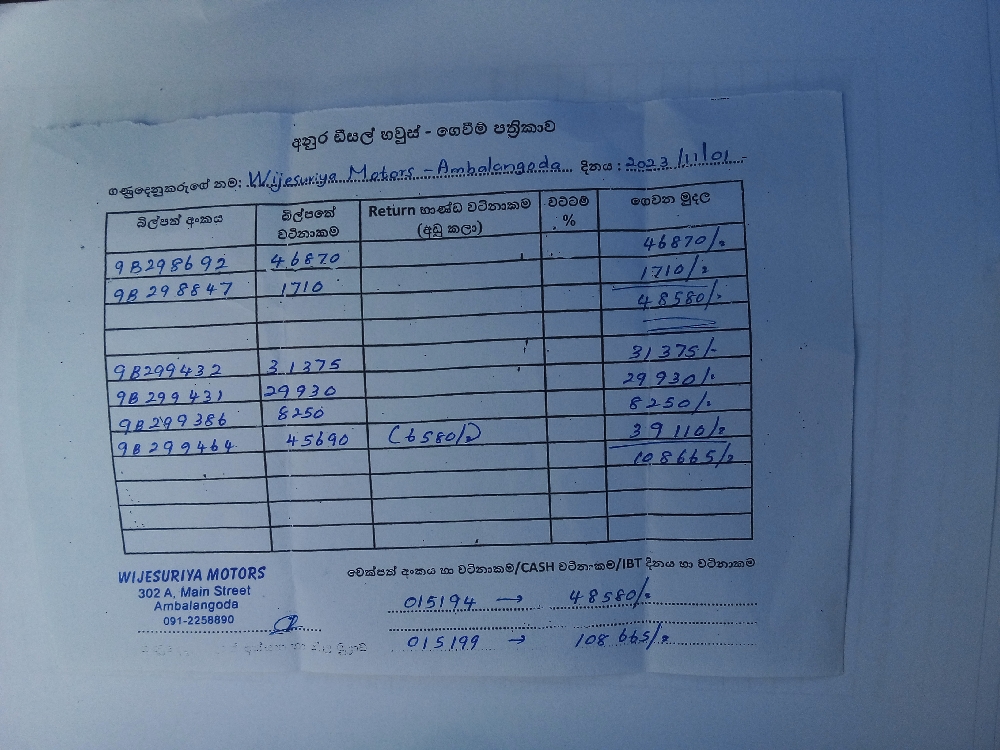 අනුර ඩීසල් හවුස් - ගෙවීම් පත්‍රිකාව
ගණුදෙනුකරුගේ නම: Wijesuriya Motors - Ambalangoda දිනය : 2023/11/01
බිල්පත් අංකය බිල්පතේ වටිනාකම Return භාණ්ඩ වටිනාකම (අඩු කලා) වට්ටම % ගෙවන මුදල
9B298692 46870 46870/=
9B298847 1710 1710/=
48580/=
9B299432 31375 31375/-
9B299431 29930 29930/=
9B299386 8250 8250/=
9B299464 45690 (6580/=) 39110/=
108665/=
චෙක්පත් අංකය හා වටිනාකම/CASH වටිනාකම/IBT දිනය හා වටිනාකම
WIJESURIYA MOTORS
302 A, Main Street
Ambalangoda
091-2258890
015194 → 48580/=
015199 → 108665/=